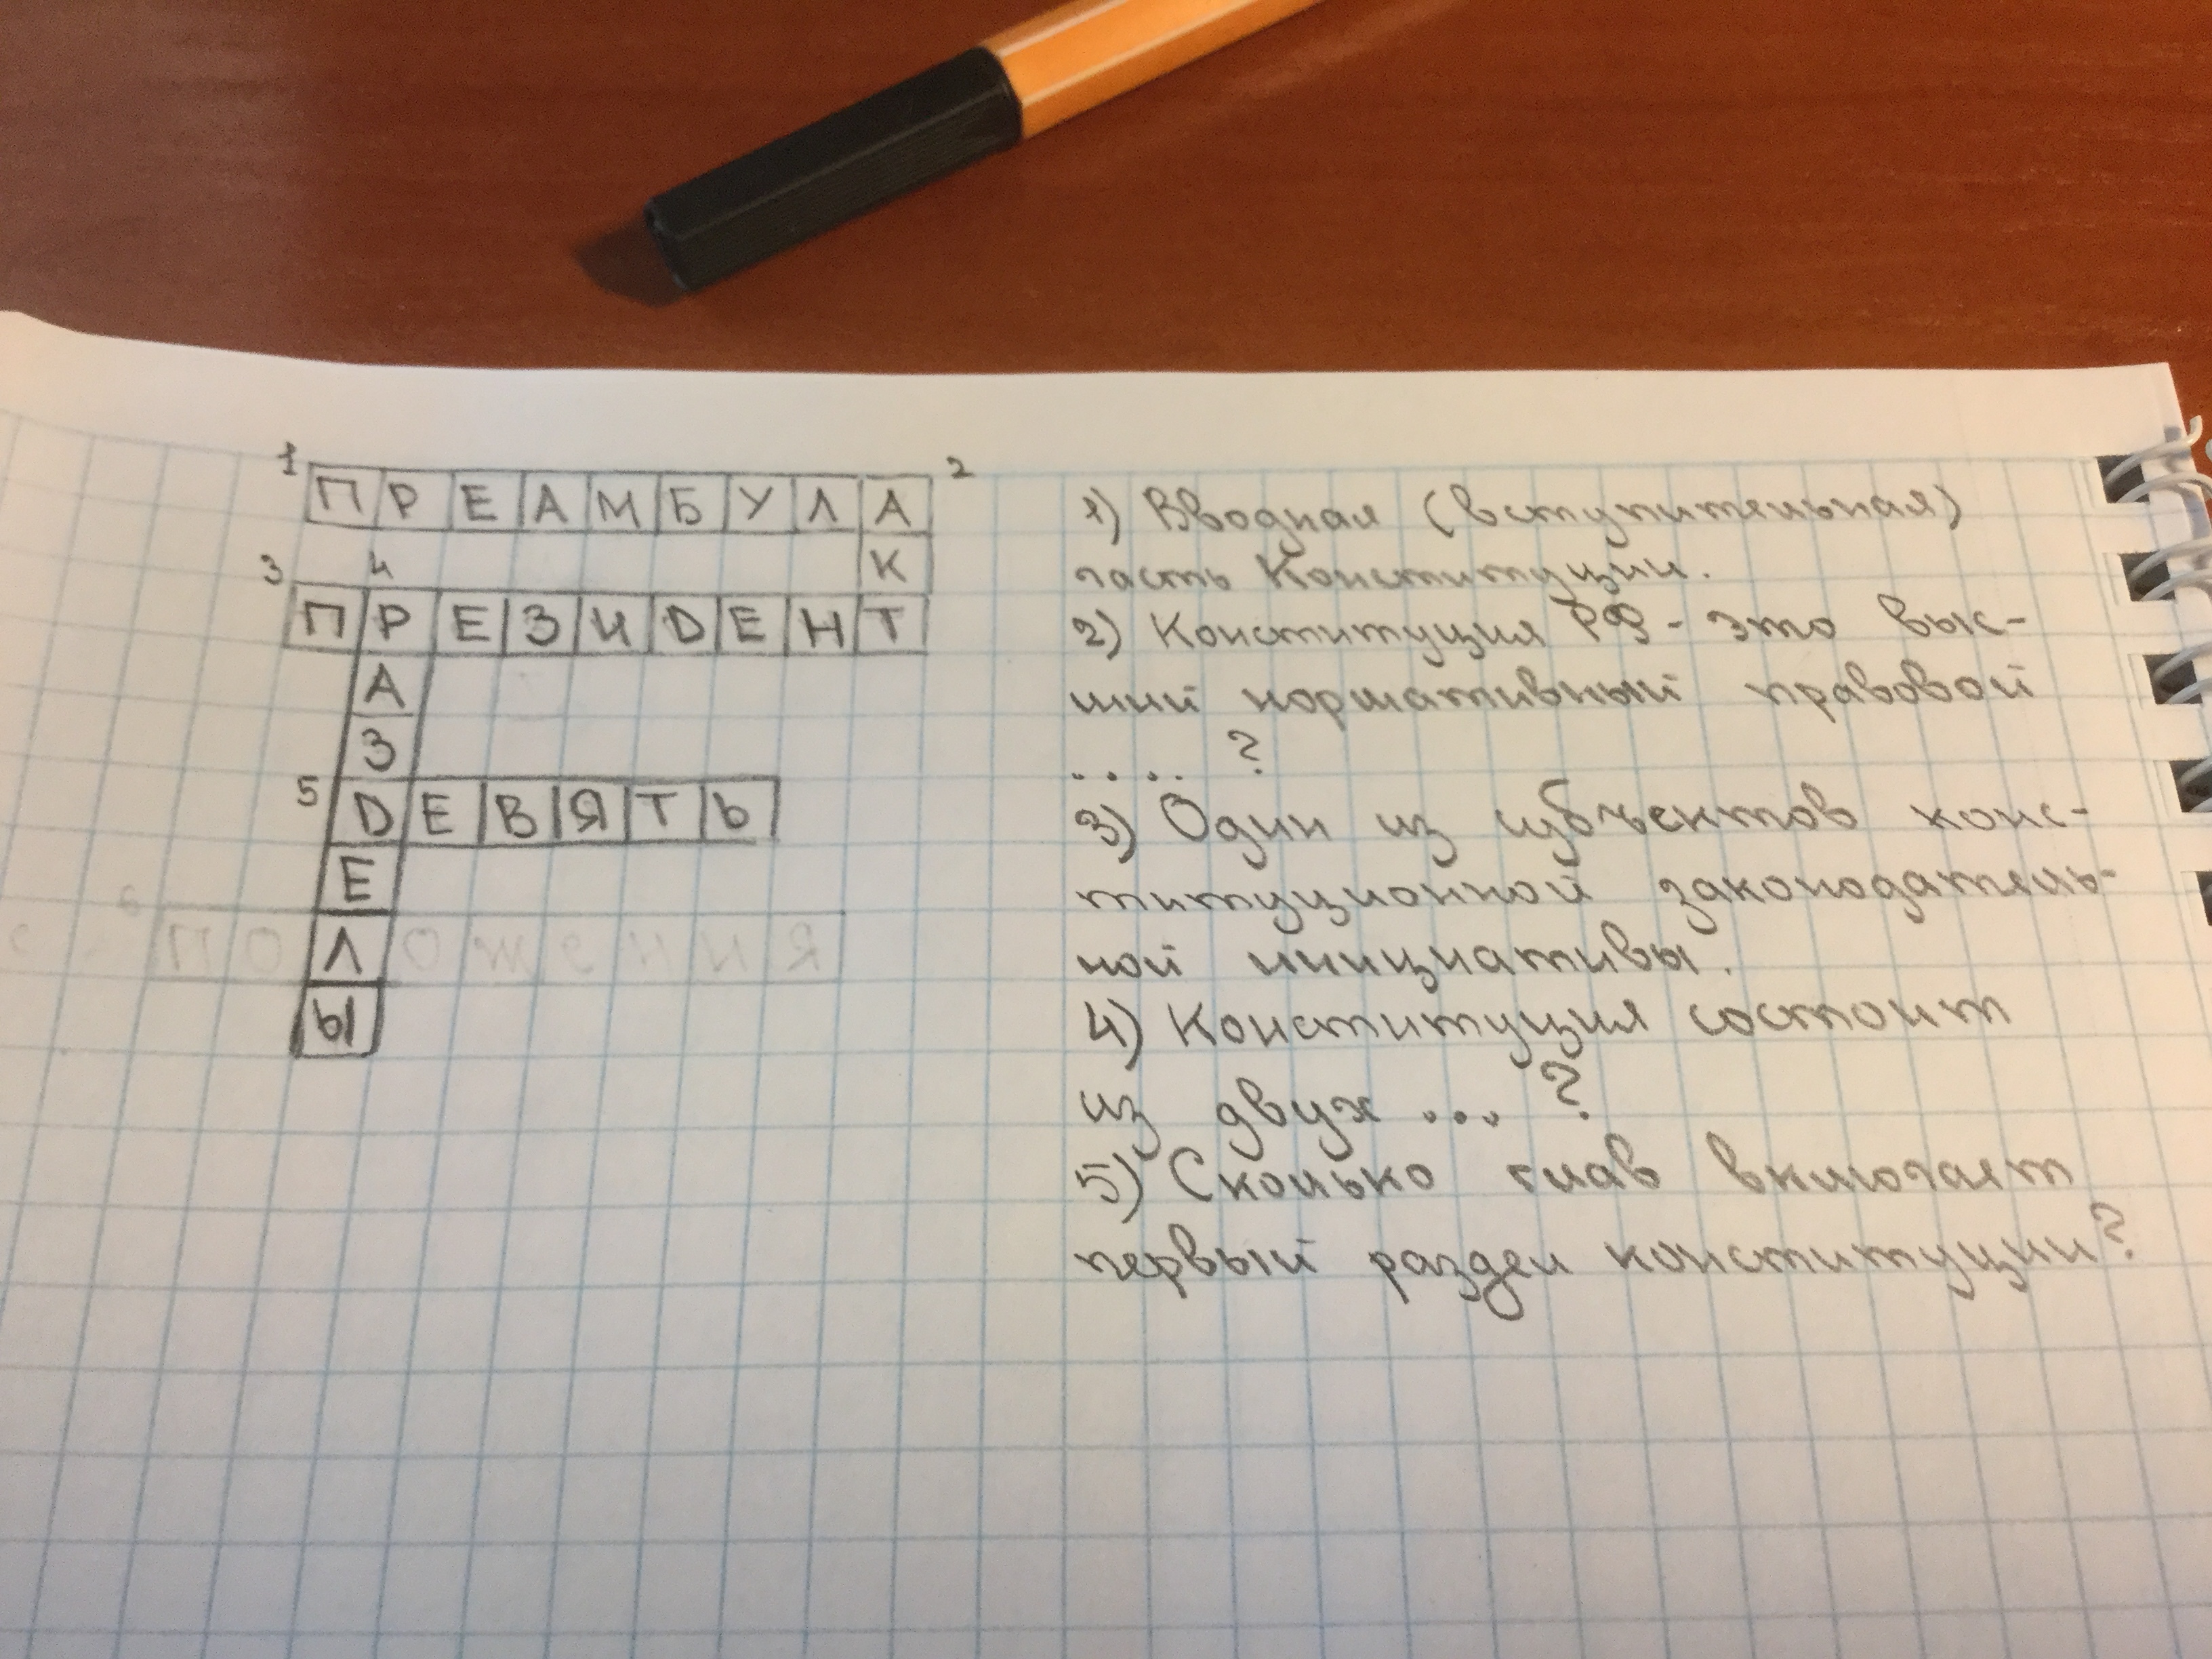 1 ПРЕАМБУЛА 2
К
3 4
ПРЕЗИДЕНТ
А
З
5 ДЕВЯТЬ
Е
Л
Ы
1) Вводная (вступительная)
часть Конституции.
2) Конституция РФ - это выс-
ший нормативный правовой
.... ?
3) Один из субъектов конс-
титуционной законодатель-
ной инициативы.
4) Конституция состоит
из двух ... ?
5) Сколько глав включает
первый раздел конституции?